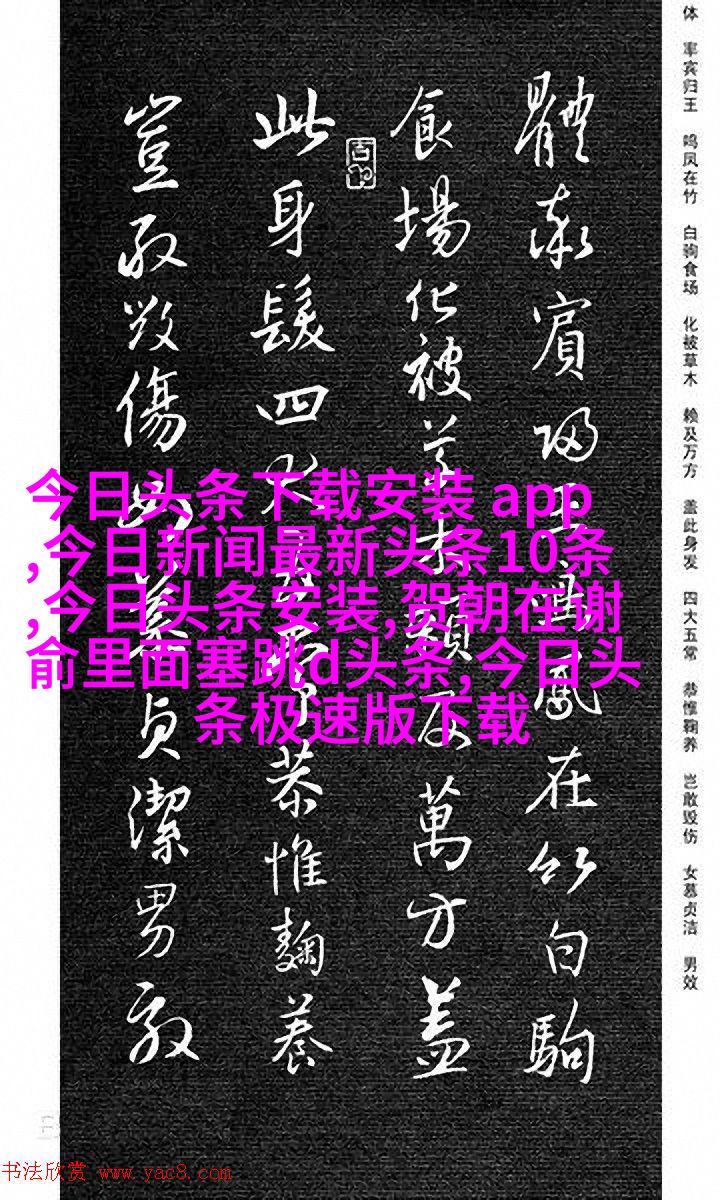 体 率宾归王 鸣凤在竹 白驹食场 化被草木 赖及万方 盖此身发 四大五常 恭惟鞠养 岂敢毁伤 女慕贞洁 男效
體率賓歸王鳴鳳在竹白駒
食場化被草木賴及萬方蓋
此身髮四大五常恭惟鞠養
豈敢毀傷女慕貞潔男效
今日头条下载安装 app
,今日新闻最新头条10条
,今日头条安装,贺朝在谢
俞里面塞跳d头条,今日头
条极速版下载
书法欣赏 www.yac8.com